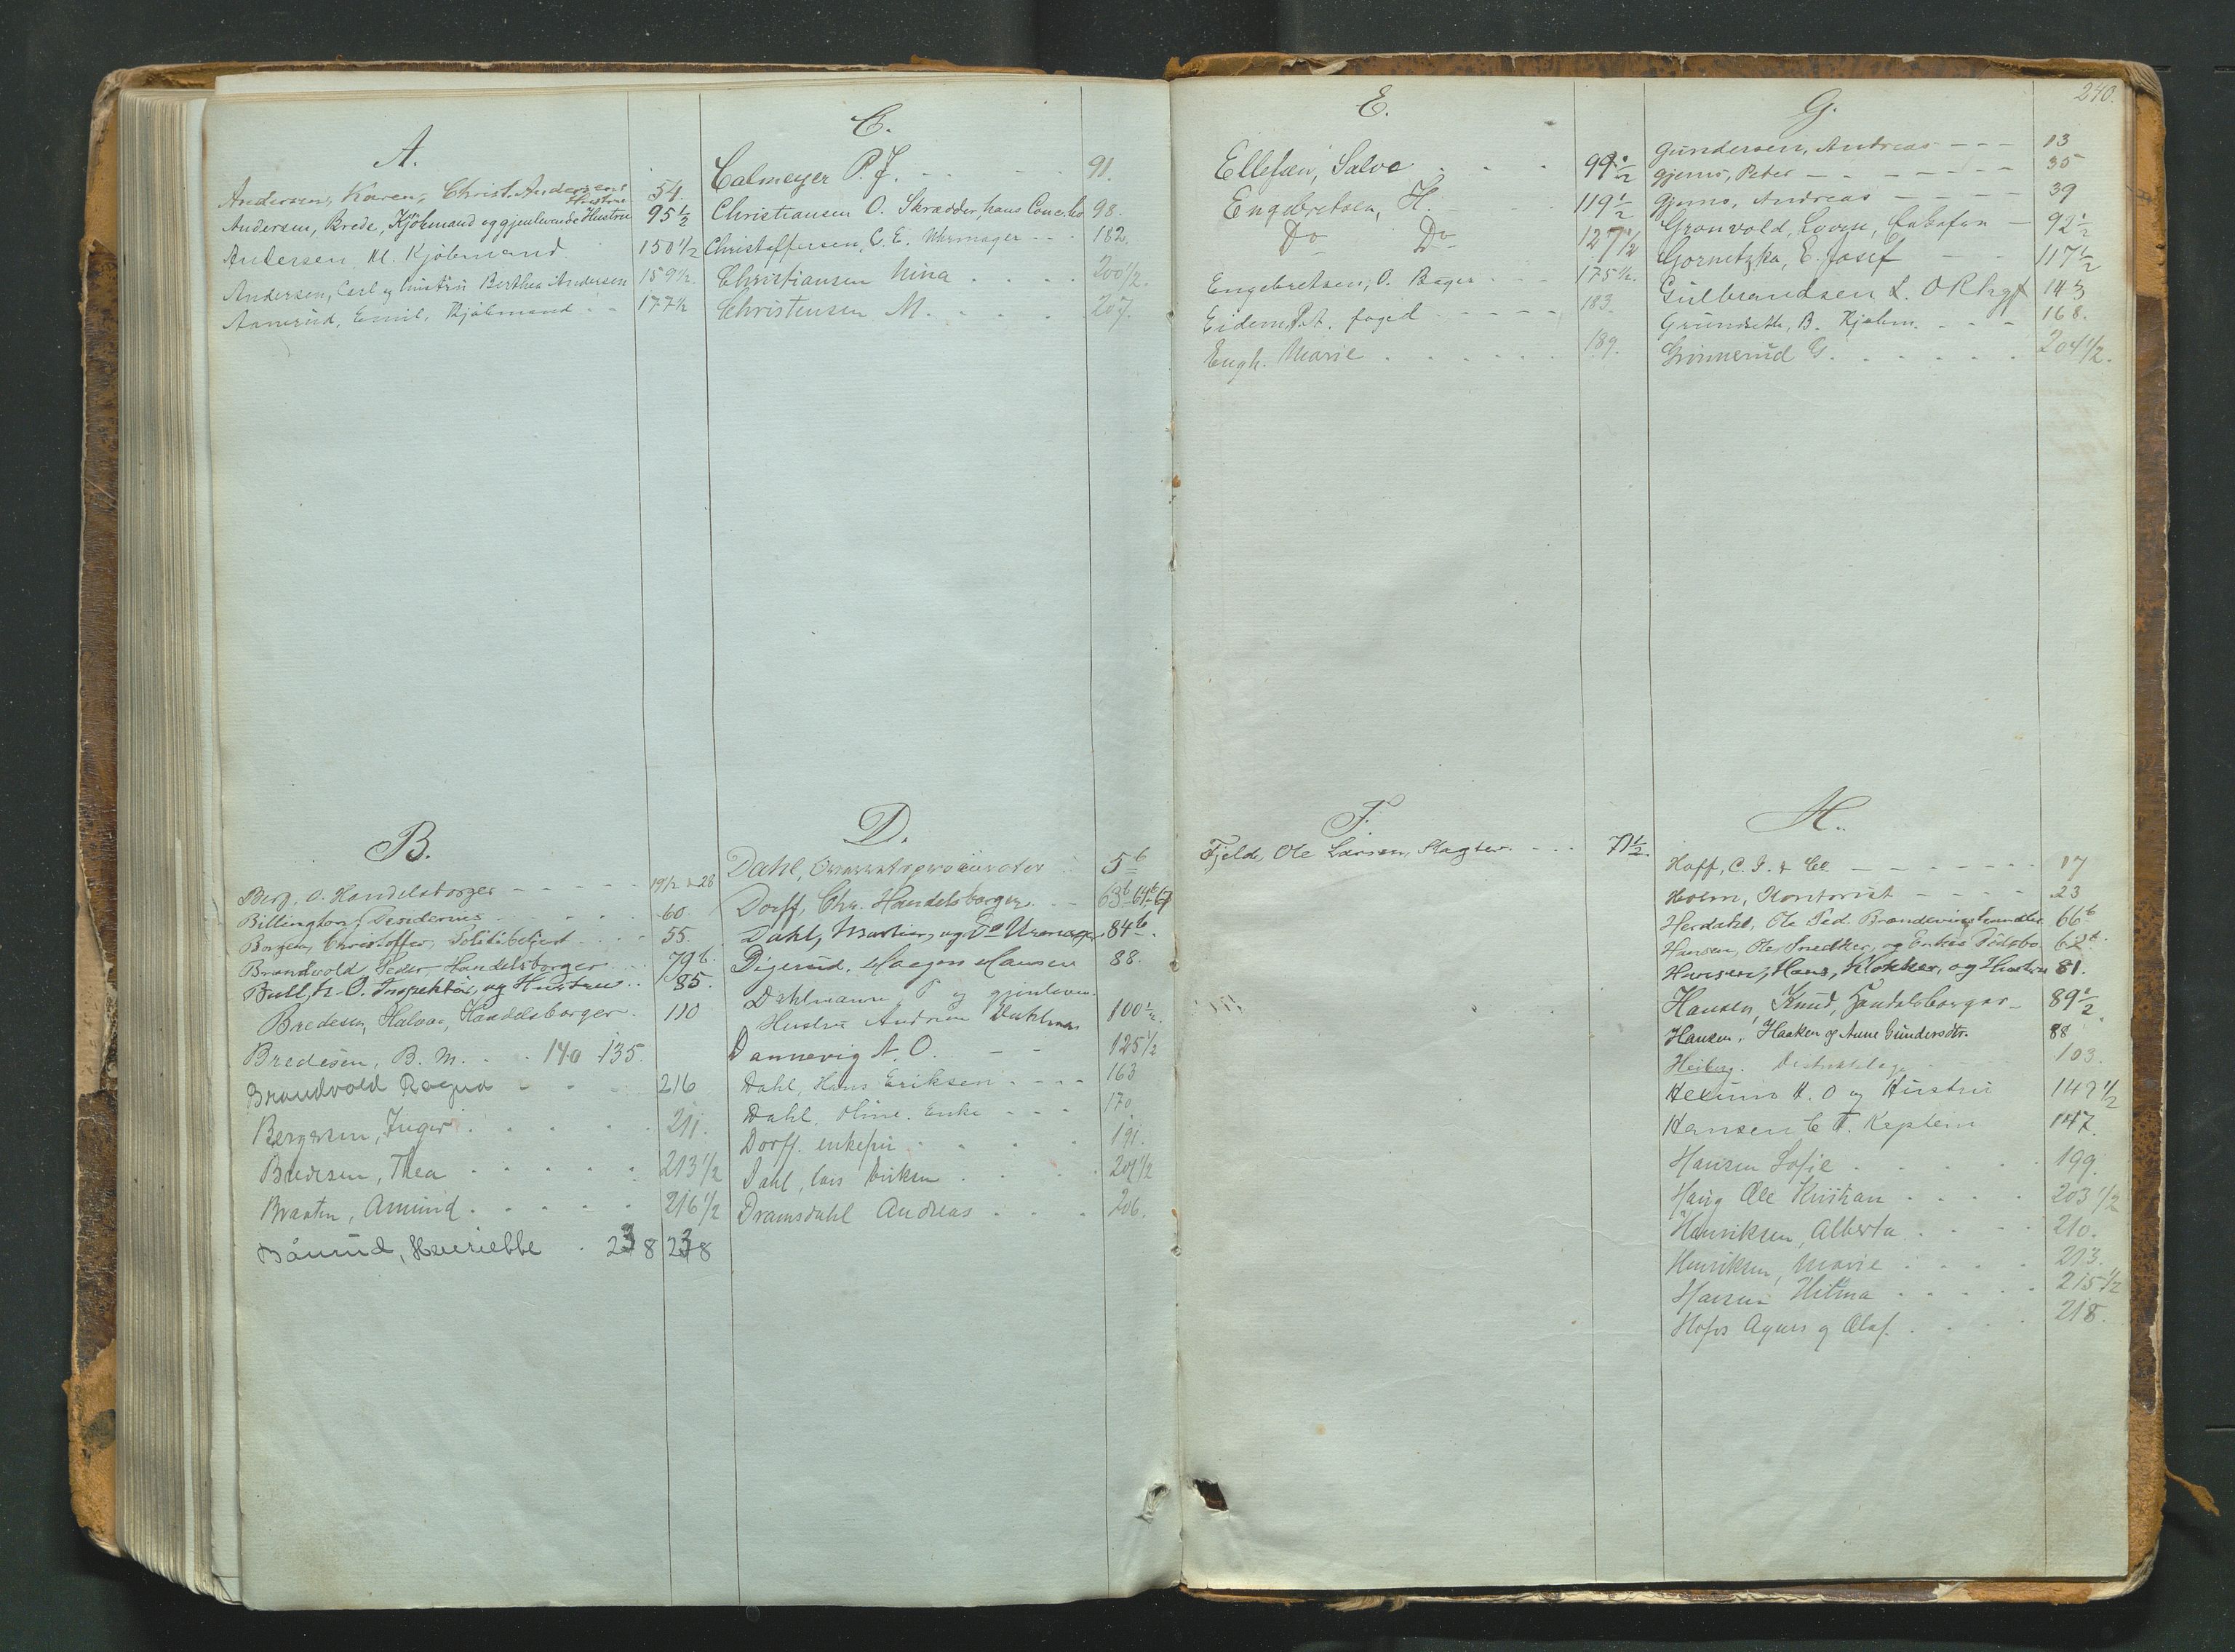 A.
Andersen, Karen, Christ. Andersens Hustrue 54.
Andersen, Brede, Kjöbmand og gjenlevende Hustrue 95 1/2
Andersen M. Kjöbmand. 150 1/2
Andersen, Carl og hustru Berthea Andersen 159 1/2.
Aamerud, Emil, Kjöbmand - - 177 1/2
B.
Berg, O. Handelsborger - - - - - 19 1/2 & 28
Billington, Desiderius 60.
Borgen, Christoffer, Politibetjent 55.
Brandvold, Peder, Handelsborger 79b.
Bull, N. O. Inspektör, og Hustrue 85.
Bredesen, Halvor, Handelsborger. 110
Bredesen, B. M. . . 140 . 135.
Brandvold Ragna 216
Bergersen, Inger 211.
Bredesen, Thea 213 1/2
Braaten, Amund 216 1/2
Bårrud, Henriette . 238 238
C.
Calmeyer P. J. 91.
Christiansen O. Skrædder, hans Conc.bo 98.
Christoffersen, C. E. Uhrmager - - 182.
Christiansen Nina 200 1/2.
Christensen M. 207.
D.
Dahl, Overretsprocurator 5b
Dorff, Chr. Handelsborger 63b-64b-67
Dahl, Martin, og Do Uremager 84b.
Digerud, Mogens Hansen 88.
Dahlmann P og gjenleven.
Hustru Andrea Dahlman 100 1/2.
Dannevig N. O. - - 125 1/2
Dahl, Hans Eriksen - - - - 163
Dahl, Oline. Enke - - - 170
Dorff. enkefru 191.
Dahl, Lars Eriksen 201 1/2
Dramsdahl Andreas 206.
E.
Ellefsen, Salve 99 1/2
Engebretsen, H. 119 1/2
Do Do 127 1/2
Engebretsen, O. Bager 175 1/2.
Eidem, foged - - - - - 183.
Engh. Marie 189.
F.
Fjeld, Ole Larsen, Slagter. - - - 71 1/2.
240.
G.
Gundersen, Andreas - - - 13
Gjems, Peter - - - - - - - 35
Gjems, Andreas - - - - 39
Grønvold, Lovise, - 92 1/2
Gornetzka, E. Josef - - 117 1/2
Gulbrandsen L. 143
Grundseth, B. Kjøbm. - - - 168.
Grinnerud G. 204 1/2.
H.
Hoff, C. J. & Co - - - - - - - 17
Holm, Kontorist - - - - - 23
Herdahl, Ole Ped. Brændevinshandler 66b
Hansen, Ole, Snedker, og Enkes Dödsbo. 62b.
Hansen, Hans, Klokker, og Hustru 81.
Hansen, Knud, Handelsborger - 89 1/2.
Hansen, Haaken og Anne Gundersdtr. 88
Heiberg. Distriktslæge 103.
Hexum H. O og Hustru 142 1/2
Hansen C T. Kaptein 147.
Hansen Sofie 199.
Haug Ole Kristian 203 1/2
Henriksen, Alberta 210.
Henriksen, Marie 213.
Hansen Hilma 215 1/2
Hofos Agnes og Olaf. 218.